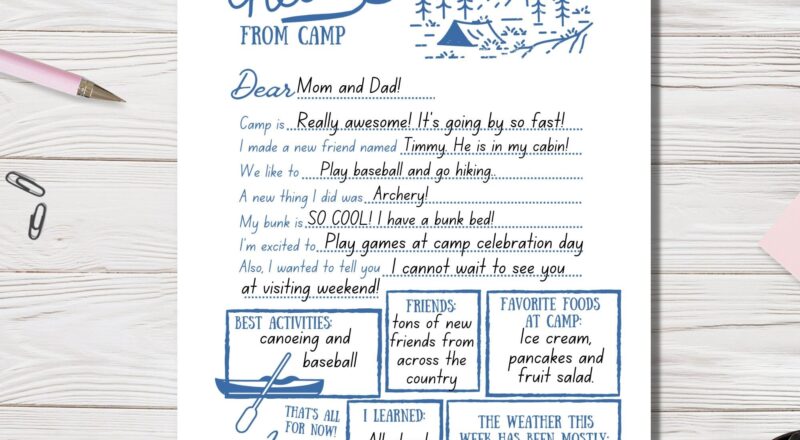 FROM CAMP
Dear Mom and Dad!
Camp is Really awesome! It's going by so fast!
I made a new friend named Timmy. He is in my cabin!
We like to Play baseball and go hiking..
A new thing I did was Archery!
My bunk is SO COOL! I have a bunk bed!
I'm excited to Play games at camp celebration day
Also, I wanted to tell you I cannot wait to see you
at visiting weekend!
BEST ACTIVITIES:
canoeing and
baseball
FRIENDS:
tons of new
friends from
across the
country
FAVORITE FOODS
AT CAMP:
Ice cream,
pancakes and
fruit salad.
THAT'S ALL
FOR NOW!
I LEARNED:
THE WEATHER THIS
WEEK HAS BEEN MOSTLY: